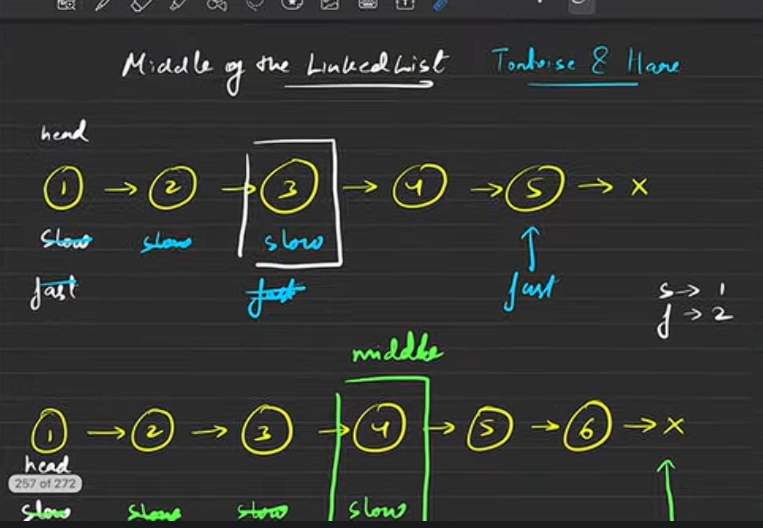 Middle of the Linked List Tortoise & Hare
head
1 → 2 → 3 → 4 → 5 → x
slow slow slow
fast fast fast
s → 1
f → 2
middle
1 → 2 → 3 → 4 → 5 → 6 → x
head
257 of 272
slow slow slow slow